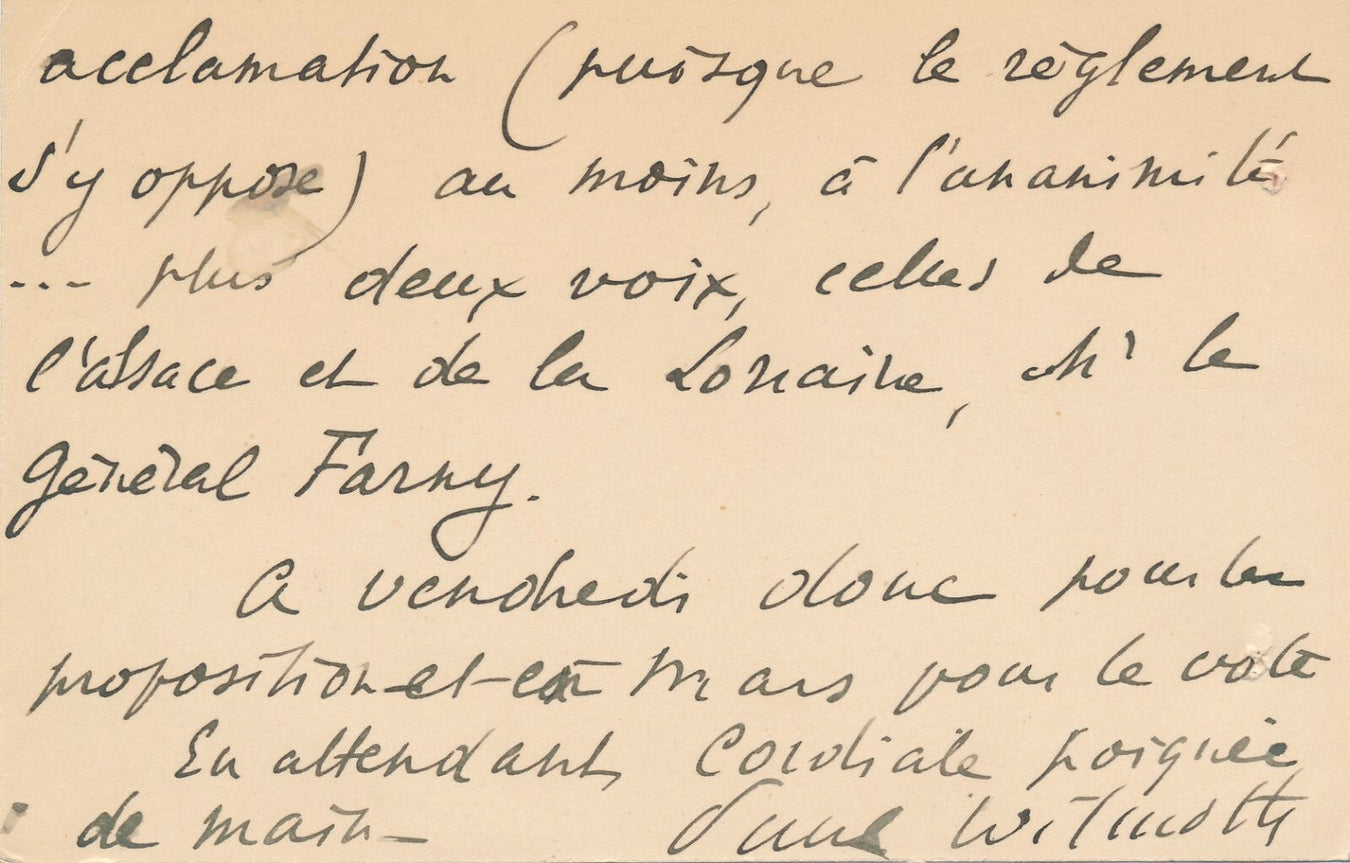 acclamation (puisque le règlement
s'y oppose) au moins, à l'unanimité
... plus deux voix, celles de
l'Alsace et de la Lorraine, Mr le
Général Farny.
A vendredi donc pour la
proposition et en Mars pour le vote
En attendant, Cordiale poignée
de main-